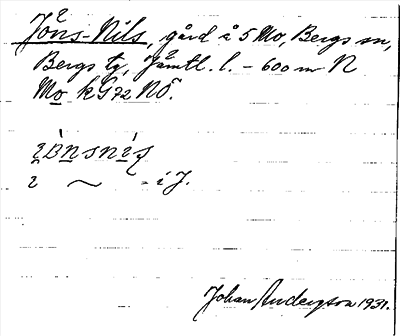 Jöns-Nils, gård å 5 Mo, Bergs sn,
Bergs tg, Jämtl. l. – 600 m N
Mo k G72 NÖ.
i ~ - i J.
Johan Anderson 1931.